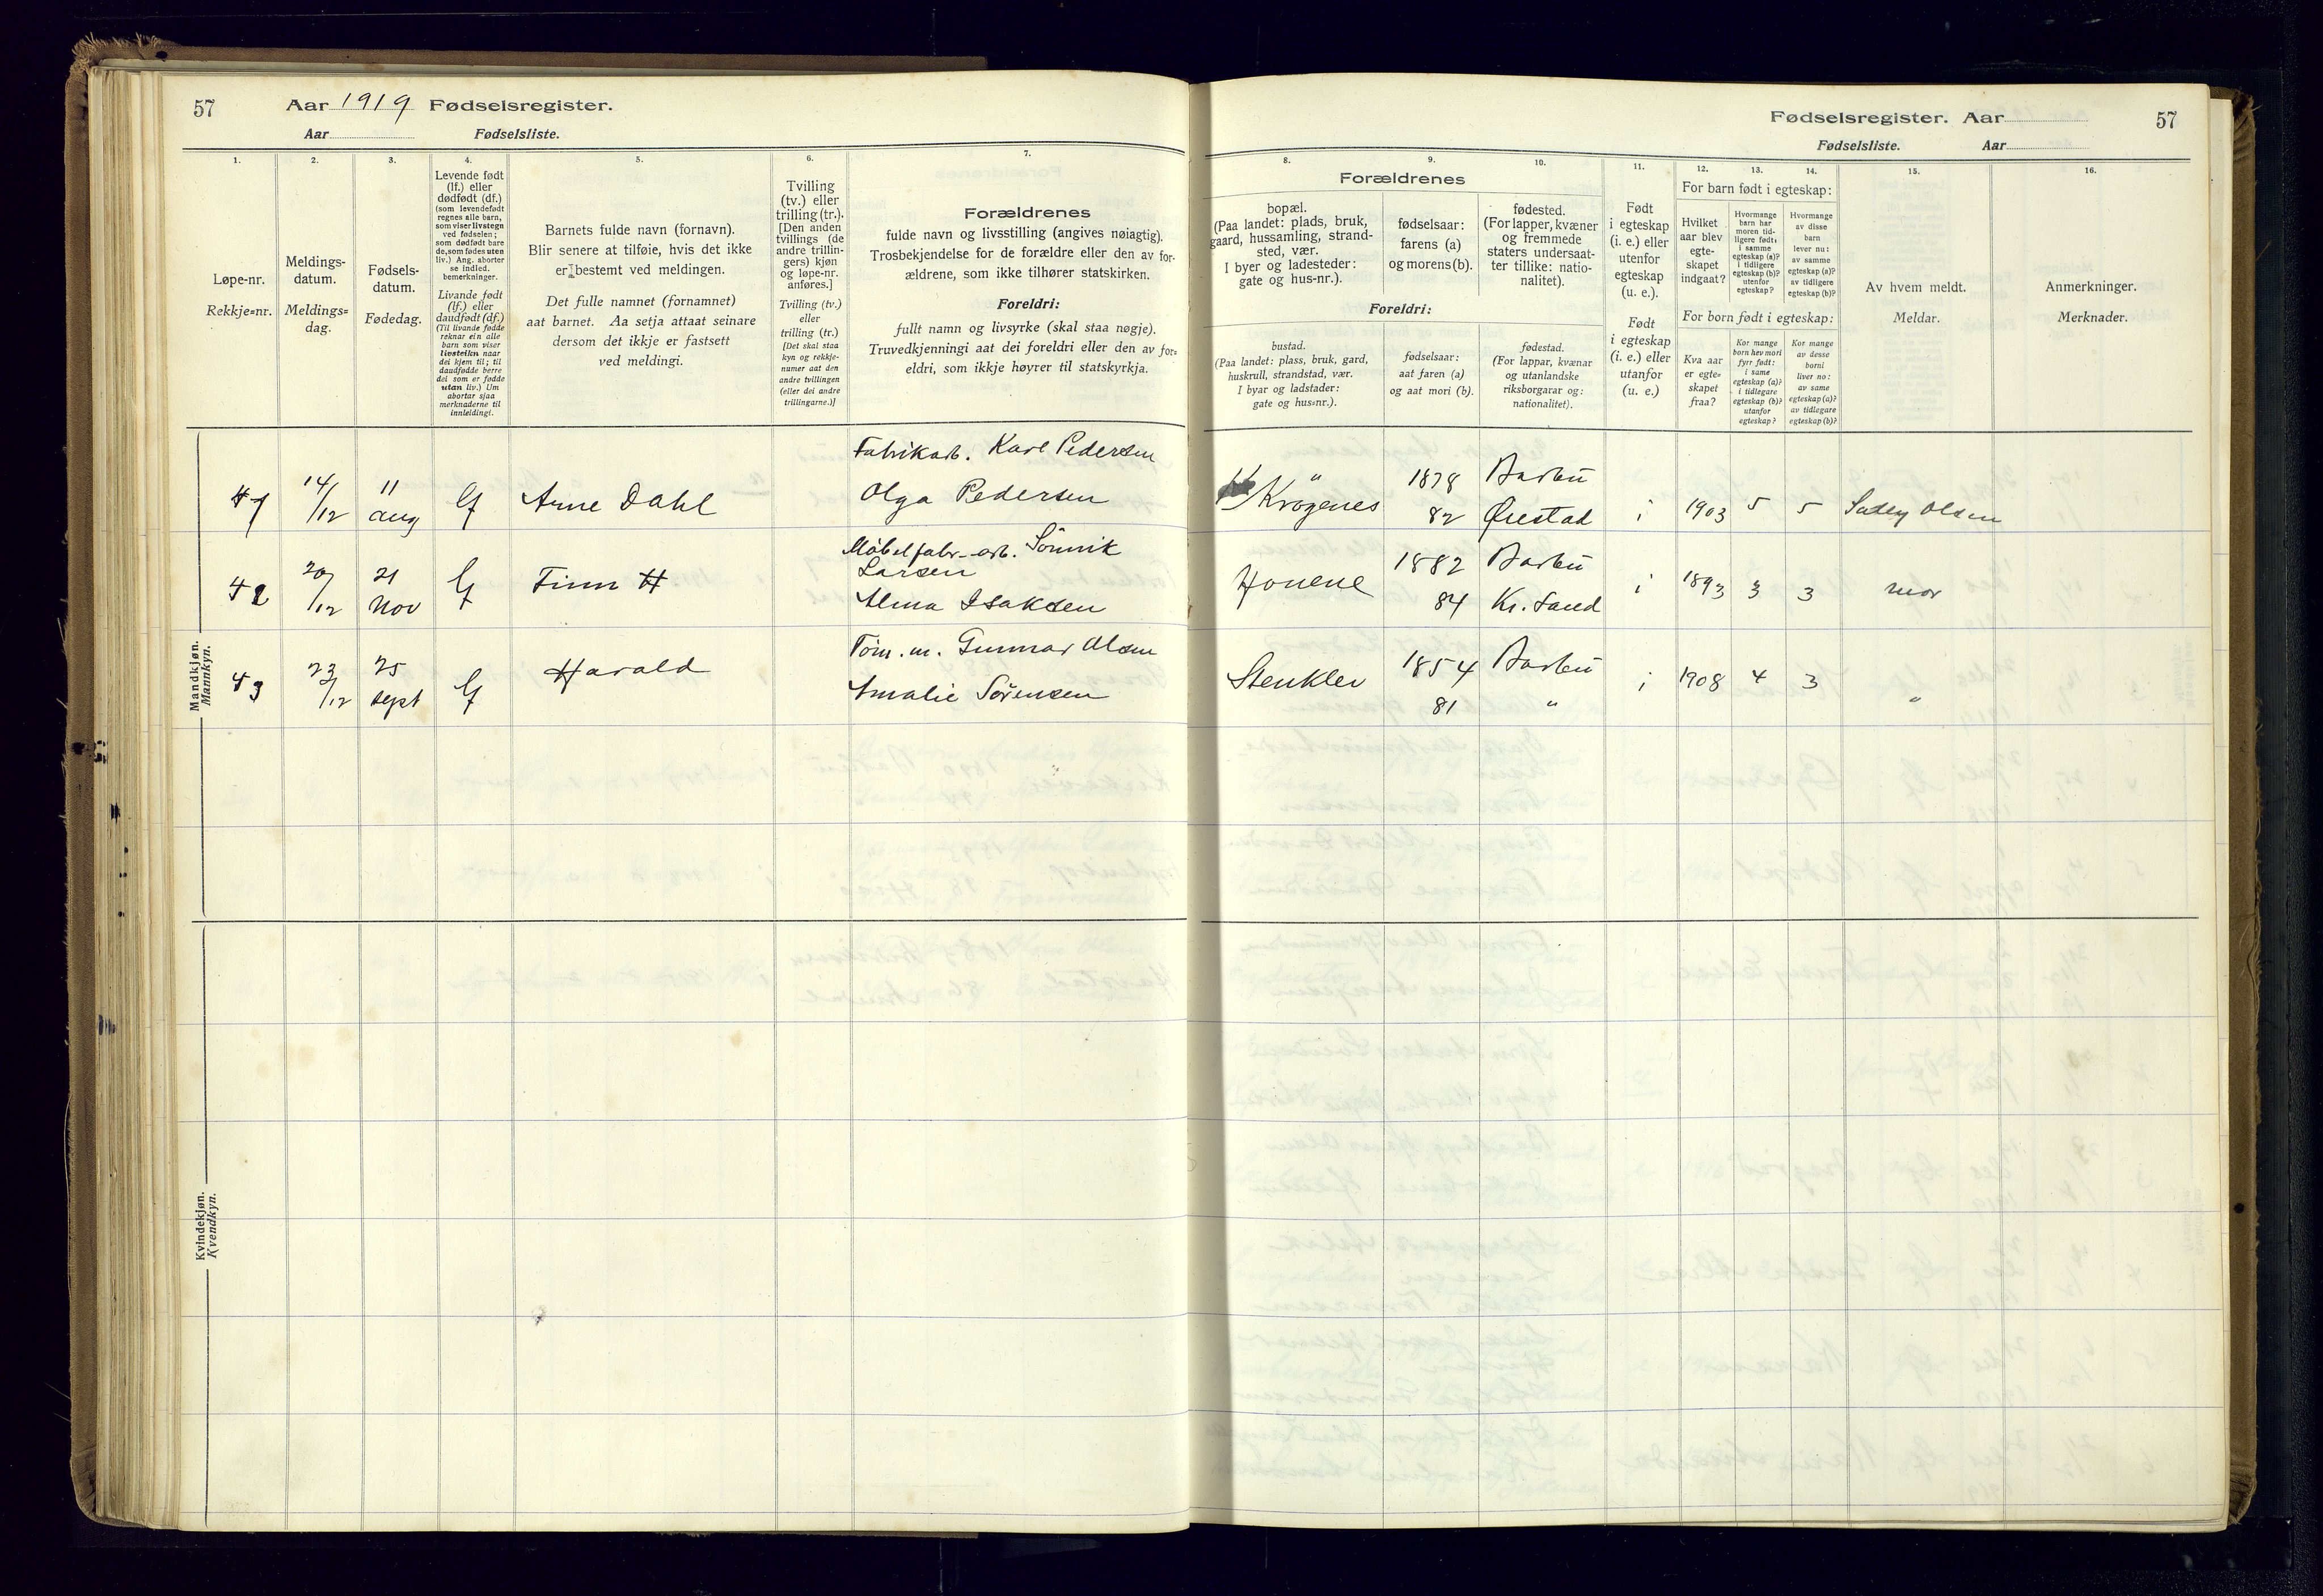 57 Aar 1919 Fødselsregister.
Aar Fødselsliste.
Fødselsregister. Aar 57
Fødselsliste. Aar
1.
Løpe-nr.
Rekkje=nr.
2.
Meldings-
datum.
Meldings=
dag.
3.
Fødsels-
datum.
Fødedag.
4.
Levende født
(lf.) eller
dødfødt (df.)
(som levendefødt
regnes alle barn,
som viser livstegn
ved fødselen;
som dødfødt bare
de, som fødes uten
liv.) Ang. aborter
se indled.
bemerkninger.
Livande født
(lf.) eller
daudfødt (df.)
(Til livande fødde
reknar ein alle
barn som viser
livsteikn naar
dei kjem til; til
daudfødde berre
dei som er fødde
utan liv.) Um
abortar sjaa
merknaderne til
innleidingi.
5.
Barnets fulde navn (fornavn).
Blir senere at tilføie, hvis det ikke
er bestemt ved meldingen.
Det fulle namnet (fornamnet)
aat barnet. Aa setja attaat seinare
dersom det ikkje er fastsett
ved meldingi.
6.
Tvilling
(tv.) eller
trilling (tr.).
[Den anden
tvillings (de
andre trillin-
gers) kjøn
og løpe-nr.
anføres.]
Tvilling (tv.)
eller
trilling (tr.)
[Det skal staa
kyn og rekkje-
numer aat den
andre tvillingen
(eller dei andre
trillingarne.)]
7.
Forældrenes
fulde navn og livsstilling (angives nøiagtig).
Trosbekjendelse for de forældre eller den av for-
ældrene, som ikke tilhører statskirken.
Foreldri:
fullt namn og livsyrke (skal staa nøgje).
Truvedkjenningi aat dei foreldri eller den av for=
eldri, som ikkje høyrer til statskyrkja.
Forældrenes
8.
bopæl.
(Paa landet: plads, bruk,
gaard, hussamling, strand-
sted, vær.
I byer og ladesteder:
gate og hus-nr.).
9.
fødselsaar:
farens (a)
og morens (b).
10.
fødested.
(For lapper, kvæner
og fremmede
staters undersaat-
ter tillike: natio-
nalitet).
Foreldri:
bustad.
(Paa landet: plass, bruk, gard,
huskrull, strandstad, vær.
I byar og ladstader:
gate og hus=nr.).
fødselsaar:
aat faren (a)
og aat mori (b).
fødestad.
(For lappar, kvænar
og utanlandske
riksborgarar og:
nationalitet).
11.
Født
i egteskap
(i. e.) eller
utenfor
egteskap
(u. e.).
Født
i egteskap
(i. e.) eller
utanfor
(u. e.)
For barn født i egteskap:
12.
Hvilket
aar blev
egte-
skapet
indgaat?
13.
Hvormange
barn har
moren tid-
ligere født:
i samme
egteskap (a)?
i tidligere
egteskap (b)?
utenfor
egteskap?
14.
Hvormange
av disse
barn
lever nu:
av samme
egteskap (a)?
av tidligere
egteskap (b)?
For born født i egteskap:
Kva aar
er egte=
skapet
fraa?
Kor mange
born hev mori
fyrr født:
i same
egteskap (a)?
i tidlegare
egteskap (b)?
utanfor
egteskap?
Kor mange
av desse
borni
liver no:
av same
egteskap (a)?
av tidlegare
egteskap (b)?
15.
Av hvem meldt.
Meldar.
16.
Anmerkninger.
Merknader.
Mandkjøn.
Mannkyn.
Fabrikarb. Karl Pedersen
41 14/12 11 aug lf Arne Dahl Olga Pedersen Krøgenes 1878 Barbu
82 Øiestad i 1903 5 5 Olsen
Møbelfabr-arb. Sønnik
Larsen
42 20/12 21 Nov lf Finn H Alma Isaksen 1882 Barbu
84 Kr.sand i 1893 3 3 mor
Tøm.m. Gunnar Olsen
43 23/12 25 sept lf Harald Amalie Sørensen Stenklev 1854 Barbu
81 " i 1908 4 3 "
Kvindekjøn.
Kvendkyn.